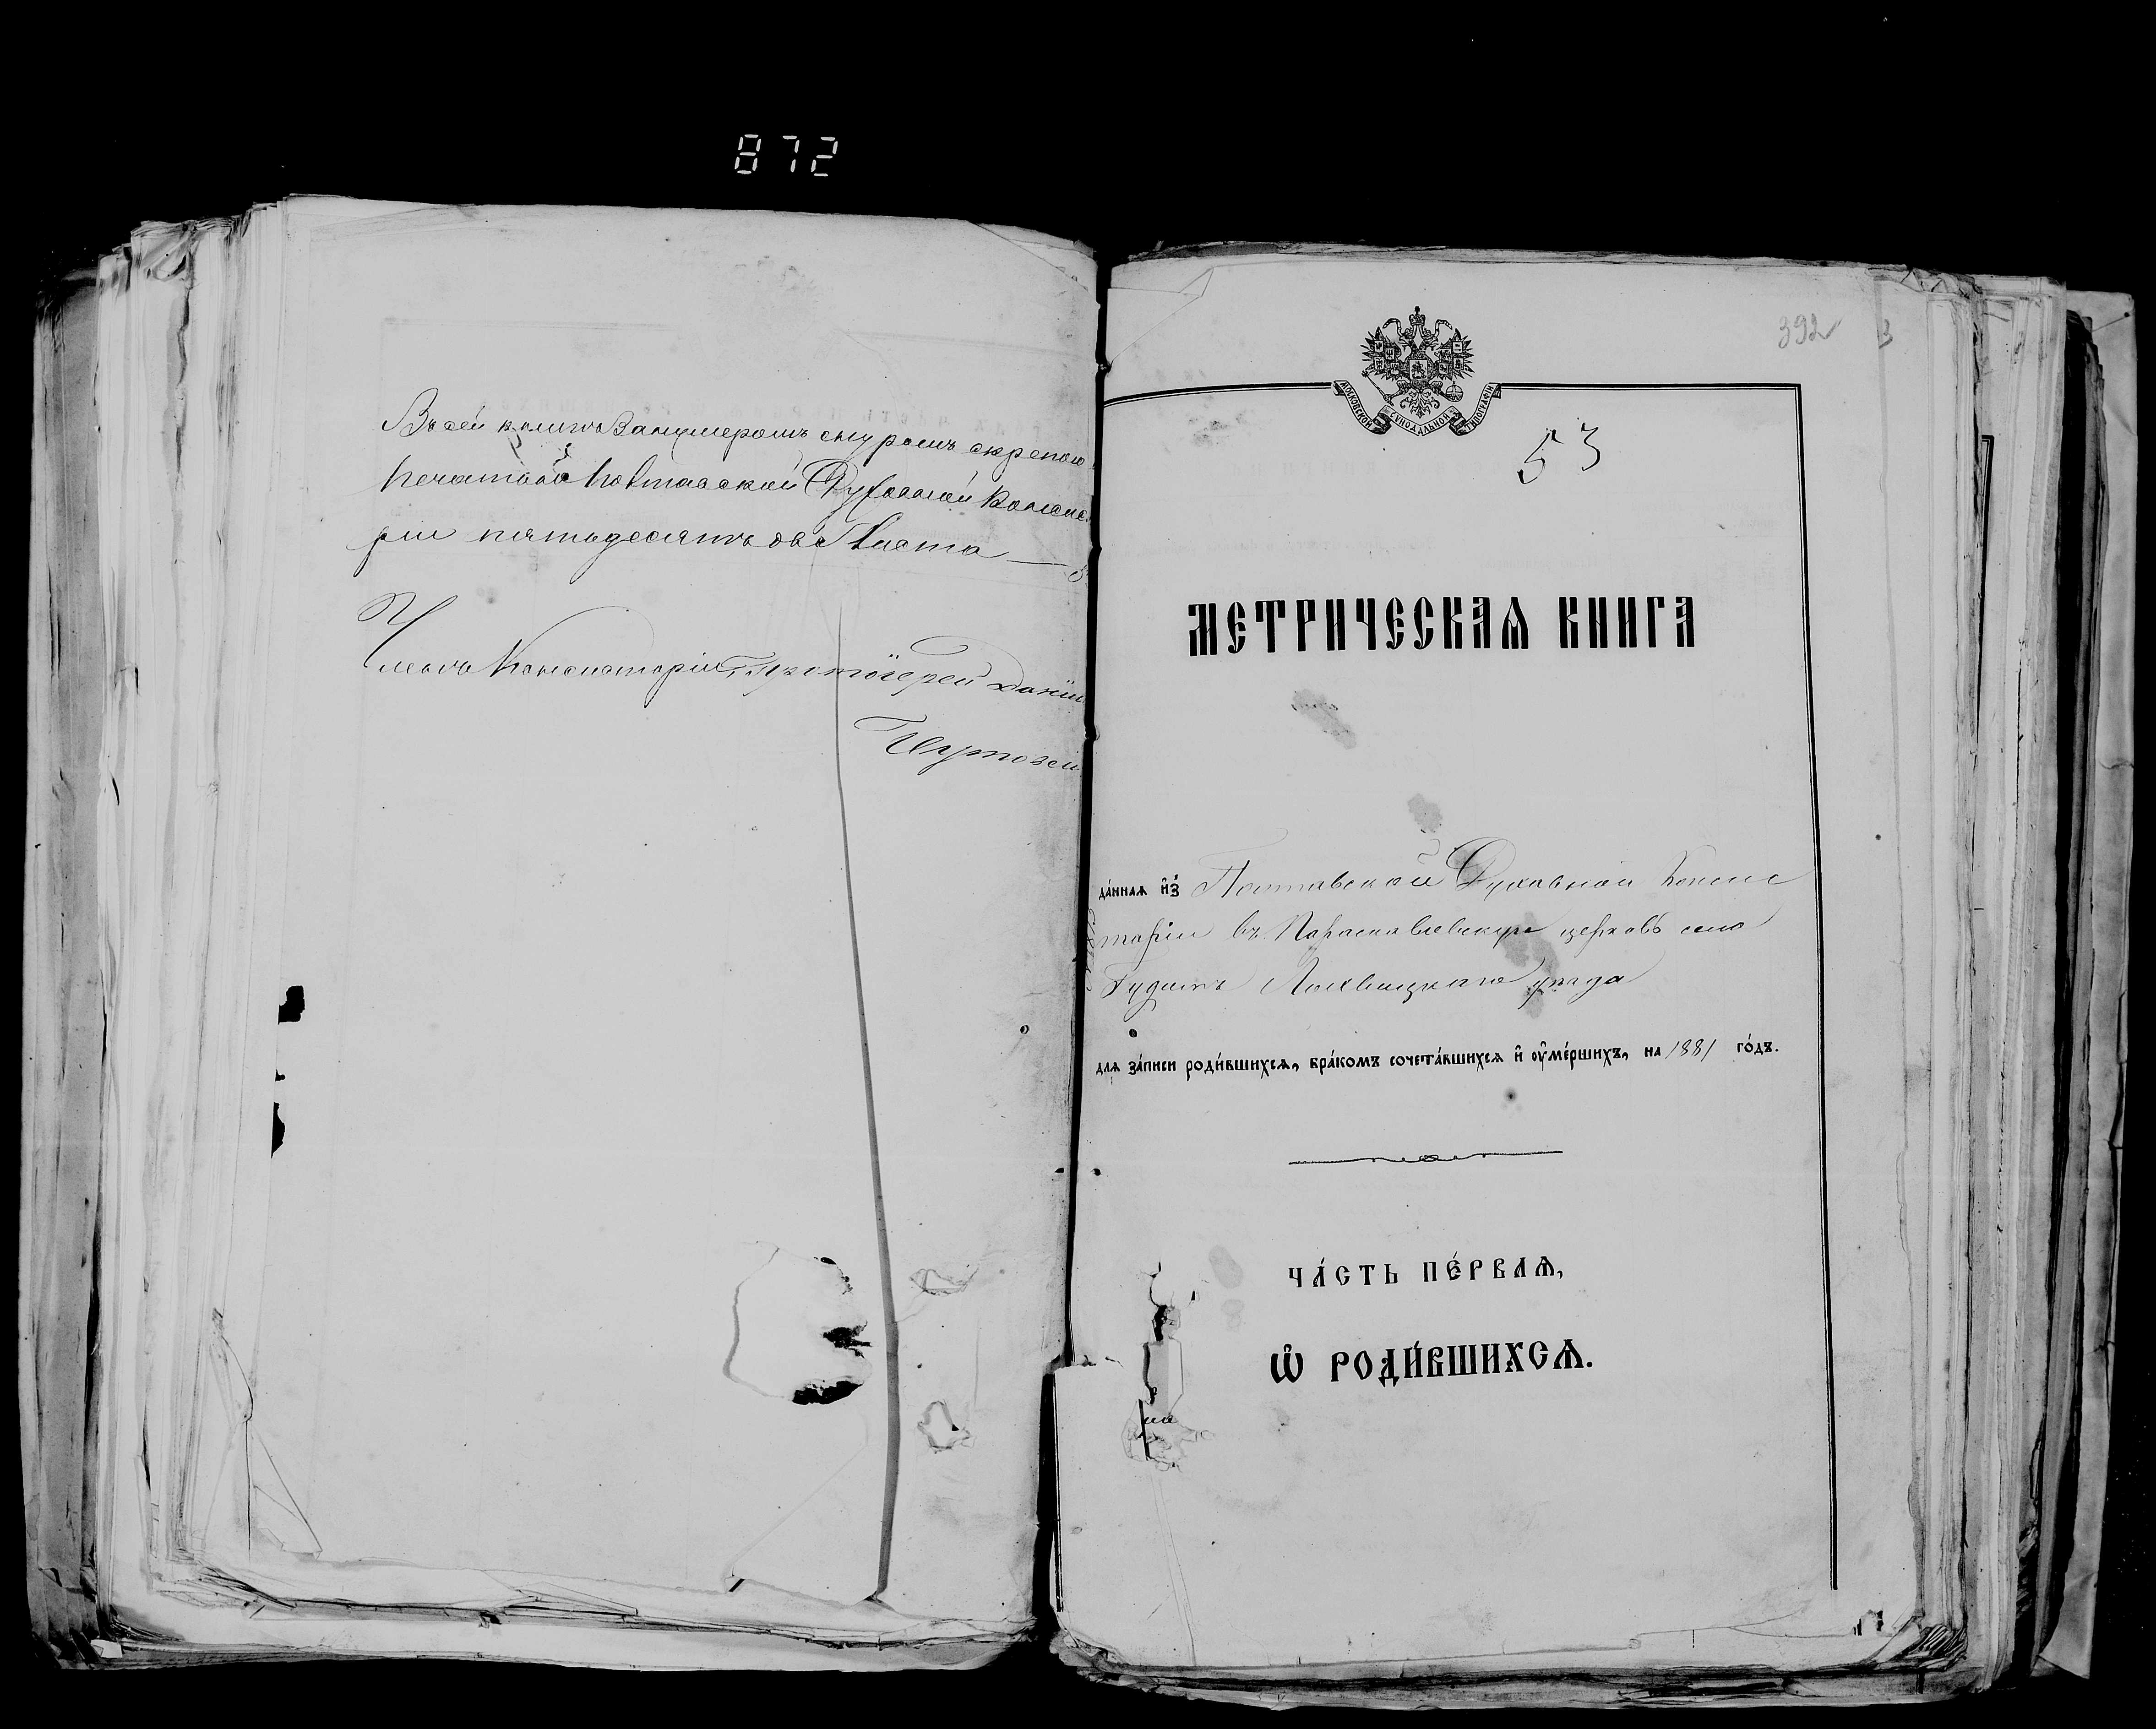 872
Въ сей книгѣ за нумеромъ шнуромъ скрепою
печатью Полтавской Духовной Консис
ріи пятьдесятъ два листа —
Членъ Консисторіи, Протоіерей Даніил
392
МОСКОВСКОЙ СѴНОДАЛЬНОЙ ТИПОГРАФІИ
53
МЕТРИЧЕСКАѦ КНИГА
да́ннаѧ и҆з̾ Полтавской Духовной Консис
торіи въ Параскевіевскую церковь села
Гудимъ Лохвицкаго уѣзда
длѧ за́писи роди́вшихсѧ, бра́комъ сочета́вшихсѧ и҆ ѹ҆ме́ршихъ, на 1881 го́дъ.
ЧА́СТЬ ПЕ́РВАѦ,
Ѡ҆ РОДИ́ВШИХСѦ.